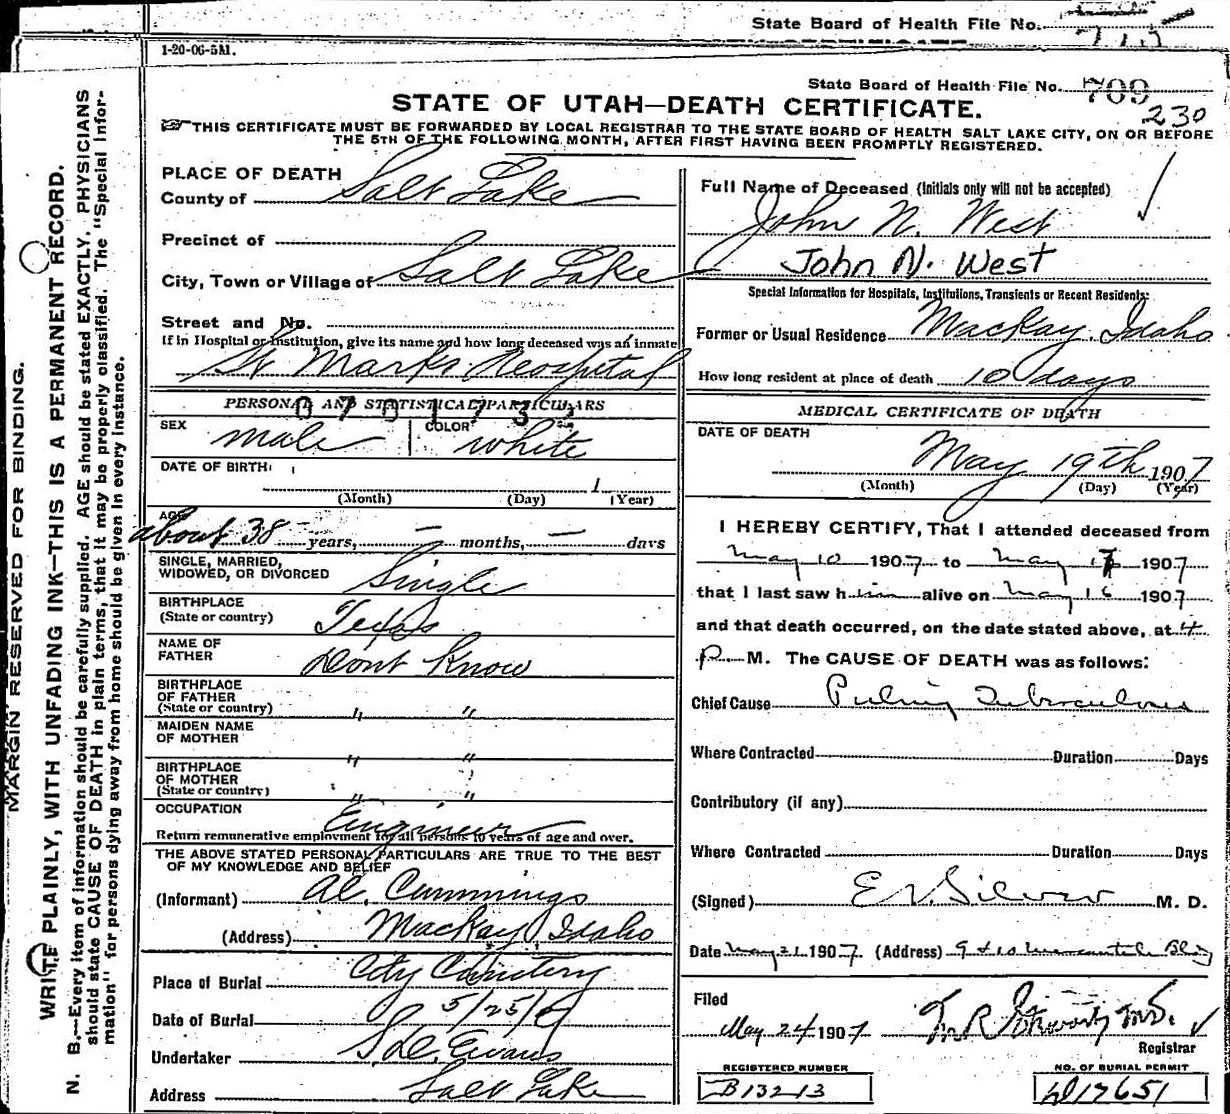 State Board of Health File No.
1-20-06-5M.
State Board of Health File No. 709
230
STATE OF UTAH—DEATH CERTIFICATE.
THIS CERTIFICATE MUST BE FORWARDED BY LOCAL REGISTRAR TO THE STATE BOARD OF HEALTH SALT LAKE CITY, ON OR BEFORE
THE 5TH OF THE FOLLOWING MONTH, AFTER FIRST HAVING BEEN PROMPTLY REGISTERED.
MARGIN RESERVED FOR BINDING.
WRITE PLAINLY, WITH UNFADING INK—THIS IS A PERMANENT RECORD.
N. B.—Every item of information should be carefully supplied. AGE should be stated EXACTLY. PHYSICIANS
should state CAUSE OF DEATH in plain terms, that it may be properly classified. The "Special Infor-
mation" for persons dying away from home should be given in every instance.
PLACE OF DEATH
County of Salt Lake
Precinct of
City, Town or Village of Salt Lake
Street and No.
If in Hospital or Institution, give its name and how long deceased was an inmate
St Marks Hospital
PERSONAL AND STATISTICAL PARTICULARS
SEX male COLOR white
DATE OF BIRTH 1
(Month) (Day) (Year)
AGE about 38 years, — months, — days
SINGLE, MARRIED,
WIDOWED, OR DIVORCED Single
BIRTHPLACE
(State or country) Texas
NAME OF
FATHER Dont Know
BIRTHPLACE
OF FATHER
(State or country) " "
MAIDEN NAME
OF MOTHER " "
BIRTHPLACE
OF MOTHER
(State or country) " "
OCCUPATION Engineer
Return remunerative employment for all persons 10 years of age and over.
THE ABOVE STATED PERSONAL PARTICULARS ARE TRUE TO THE BEST
OF MY KNOWLEDGE AND BELIEF
(Informant) Al. Cummings
(Address) Mackay Idaho
Place of Burial City Cemetery
Date of Burial 5/25/07
Undertaker S D Evans
Address Salt Lake
Full Name of Deceased (Initials only will not be accepted)
John N. West
John N. West
Special Information for Hospitals, Institutions, Transients or Recent Residents:
Former or Usual Residence Mackay. Idaho
How long resident at place of death 10 days
MEDICAL CERTIFICATE OF DEATH
DATE OF DEATH
May 19th 1907
(Month) (Day) (Year)
I HEREBY CERTIFY, That I attended deceased from
May 10 1907 to May 1907
that I last saw him alive on May 16 1907
and that death occurred, on the date stated above, at 4
P. M. The CAUSE OF DEATH was as follows:
Chief Cause Tuberculosis
Where Contracted Duration Days
Contributory (if any)
Where Contracted Duration Days
(Signed) E V Silver M. D.
Date May 21 1907. (Address) 9 & 10 Mercantile Bldg
Filed
May 24 1907
Registrar
REGISTERED NUMBER
B13213
NO. OF BURIAL PERMIT
17651